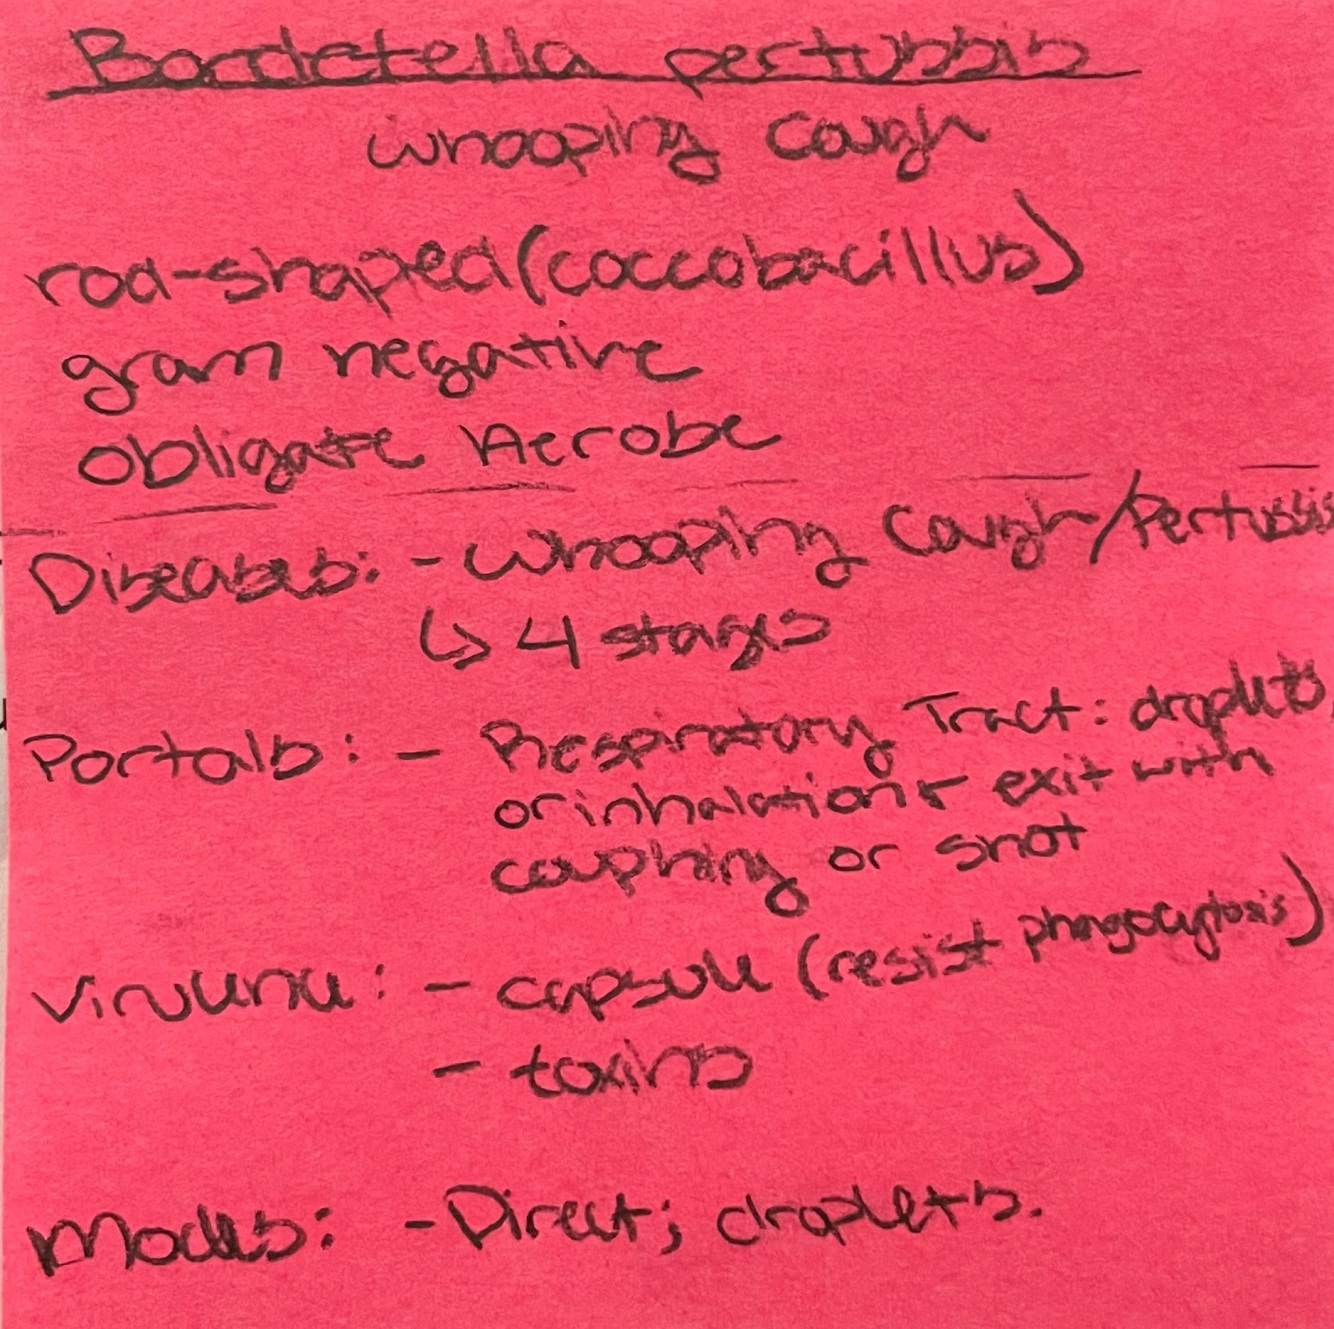 Bordetella pertussis
whooping cough
rod-shaped (coccobacillus)
gram negative
Obligate Aerobe
Diseases: - Whooping Cough/Pertussis
↳ 4 stages
Portals: - Respiratory Tract: droplets
or inhalation + exit with
couphing or snot
Virulence: - capsule (resist phagocytosis)
- toxins
Modes: - Direct; droplets.